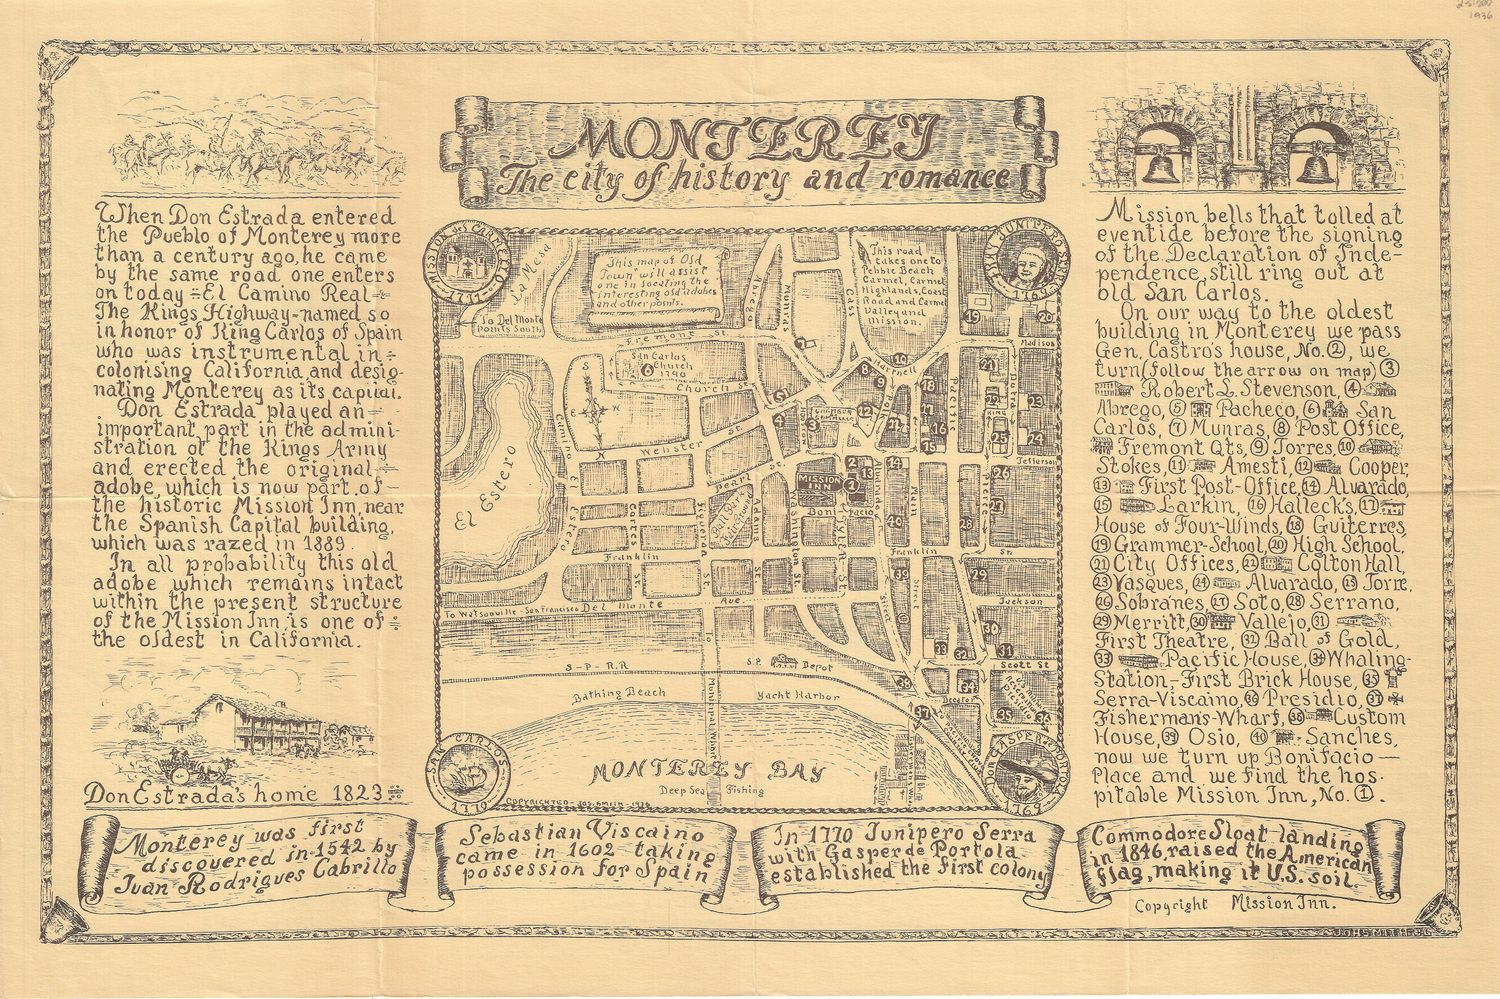 1936
MONTEREY
The city of history and romance
When Don Estrada entered
the Pueblo of Monterey more
than a century ago, he came
by the same road one enters
on today ÷ El Camino Real ÷
The Kings Highway-named so
in honor of King Carlos of Spain
who was instrumental in ÷
colonising California, and desig-
nating Monterey as its capital.
Don Estrada played an
important part in the admini-
stration of the Kings Army
and erected the original ÷
adobe, which is now part of -
the historic Mission Inn, near
the Spanish Capital building,
which was razed in 1889.
In all probability this old
adobe which remains intact
within the present structure
of the Mission Inn, is one of
the oldest in California.
Don Estrada's home 1823
MISSION DEL CARMELO
1771
FRAY JUNIPERO SERRA
1769
SAN CARLOS
1779
DON GASPER DE PORTOLA
1769
La Mesa
This map of "Old
Town" will assist
one in locating the
interesting old adobes
and other points.
This road
takes one to
Pebble Beach
Carmel, Carmel
Highlands, Coast
Road and Carmel
Valley and
Mission.
To Del Monte
points South
Fremont St.
Abrego
Munras
Cass
San Carlos
Church
Church St.
Hartnell
Madison
Webster St.
Pearl St.
Jefferson
Camino
El Estero
El Estero
MISSION
INN
Bonifacio
Cortes
Figueroa
Adams
Washington St.
Tyler St.
Alvarado
Main
Street
Pacific
Pierce
Dutra
Franklin St.
Franklin St.
Jackson
To Watsonville - San Francisco Del Monte Ave.
S-P-R.R
S.P. Depot
Scott St
Bathing Beach
Yacht Harbor
Municipal Wharf
Decatur
MONTEREY BAY
Deep Sea Fishing
COPYRIGHTED - JOS. SMITH - 1936
Mission bells that tolled at
eventide before the signing
of the Declaration of Inde-
pendence, still ring out at
old San Carlos.
On our way to the oldest
building in Monterey we pass
Gen. Castro's house, No. 2, we
turn (follow the arrow on map) 3
Robert L. Stevenson, 4
Abrego, 5 Pacheco, 6 San
Carlos, 7 Munras, 8 Post Office,
Fremont Qts, 9 Torres, 10
Stokes, 11 Amesti, 12 Cooper,
13 First Post-Office, 14 Alvarado,
15 Larkin, 16 Halleck's, 17
House of Four-Winds, 18 Guiterres,
19 Grammer-School, 20 High School,
21 City Offices, 22 Colton Hall,
23 Vasques, 24 Alvarado, 25 Torre,
26 Sobranes, 27 Soto, 28 Serrano,
29 Merritt, 30 Vallejo, 31
First Theatre, 32 Ball of Gold,
33 Pacific House, 34 Whaling-
Station-First Brick House, 35
Serra-Viscaino, 36 Presidio, 37
Fishermans-Wharf, 38 Custom
House, 39 Osio, 40 Sanches,
now we turn up Bonifacio —
Place and we find the hos-
pitable Mission Inn, No. 1.
Monterey was first
discovered in-1542 by
Juan Rodrigues Cabrillo
Sebastian Viscaino
came in 1602 taking
possession for Spain
In 1770 Junipero Serra
with Gasper de Portola
established the first colony
Commodore Sloat landing
in 1846, raised the American
flag, making it U.S. soil.
Copyright Mission Inn.